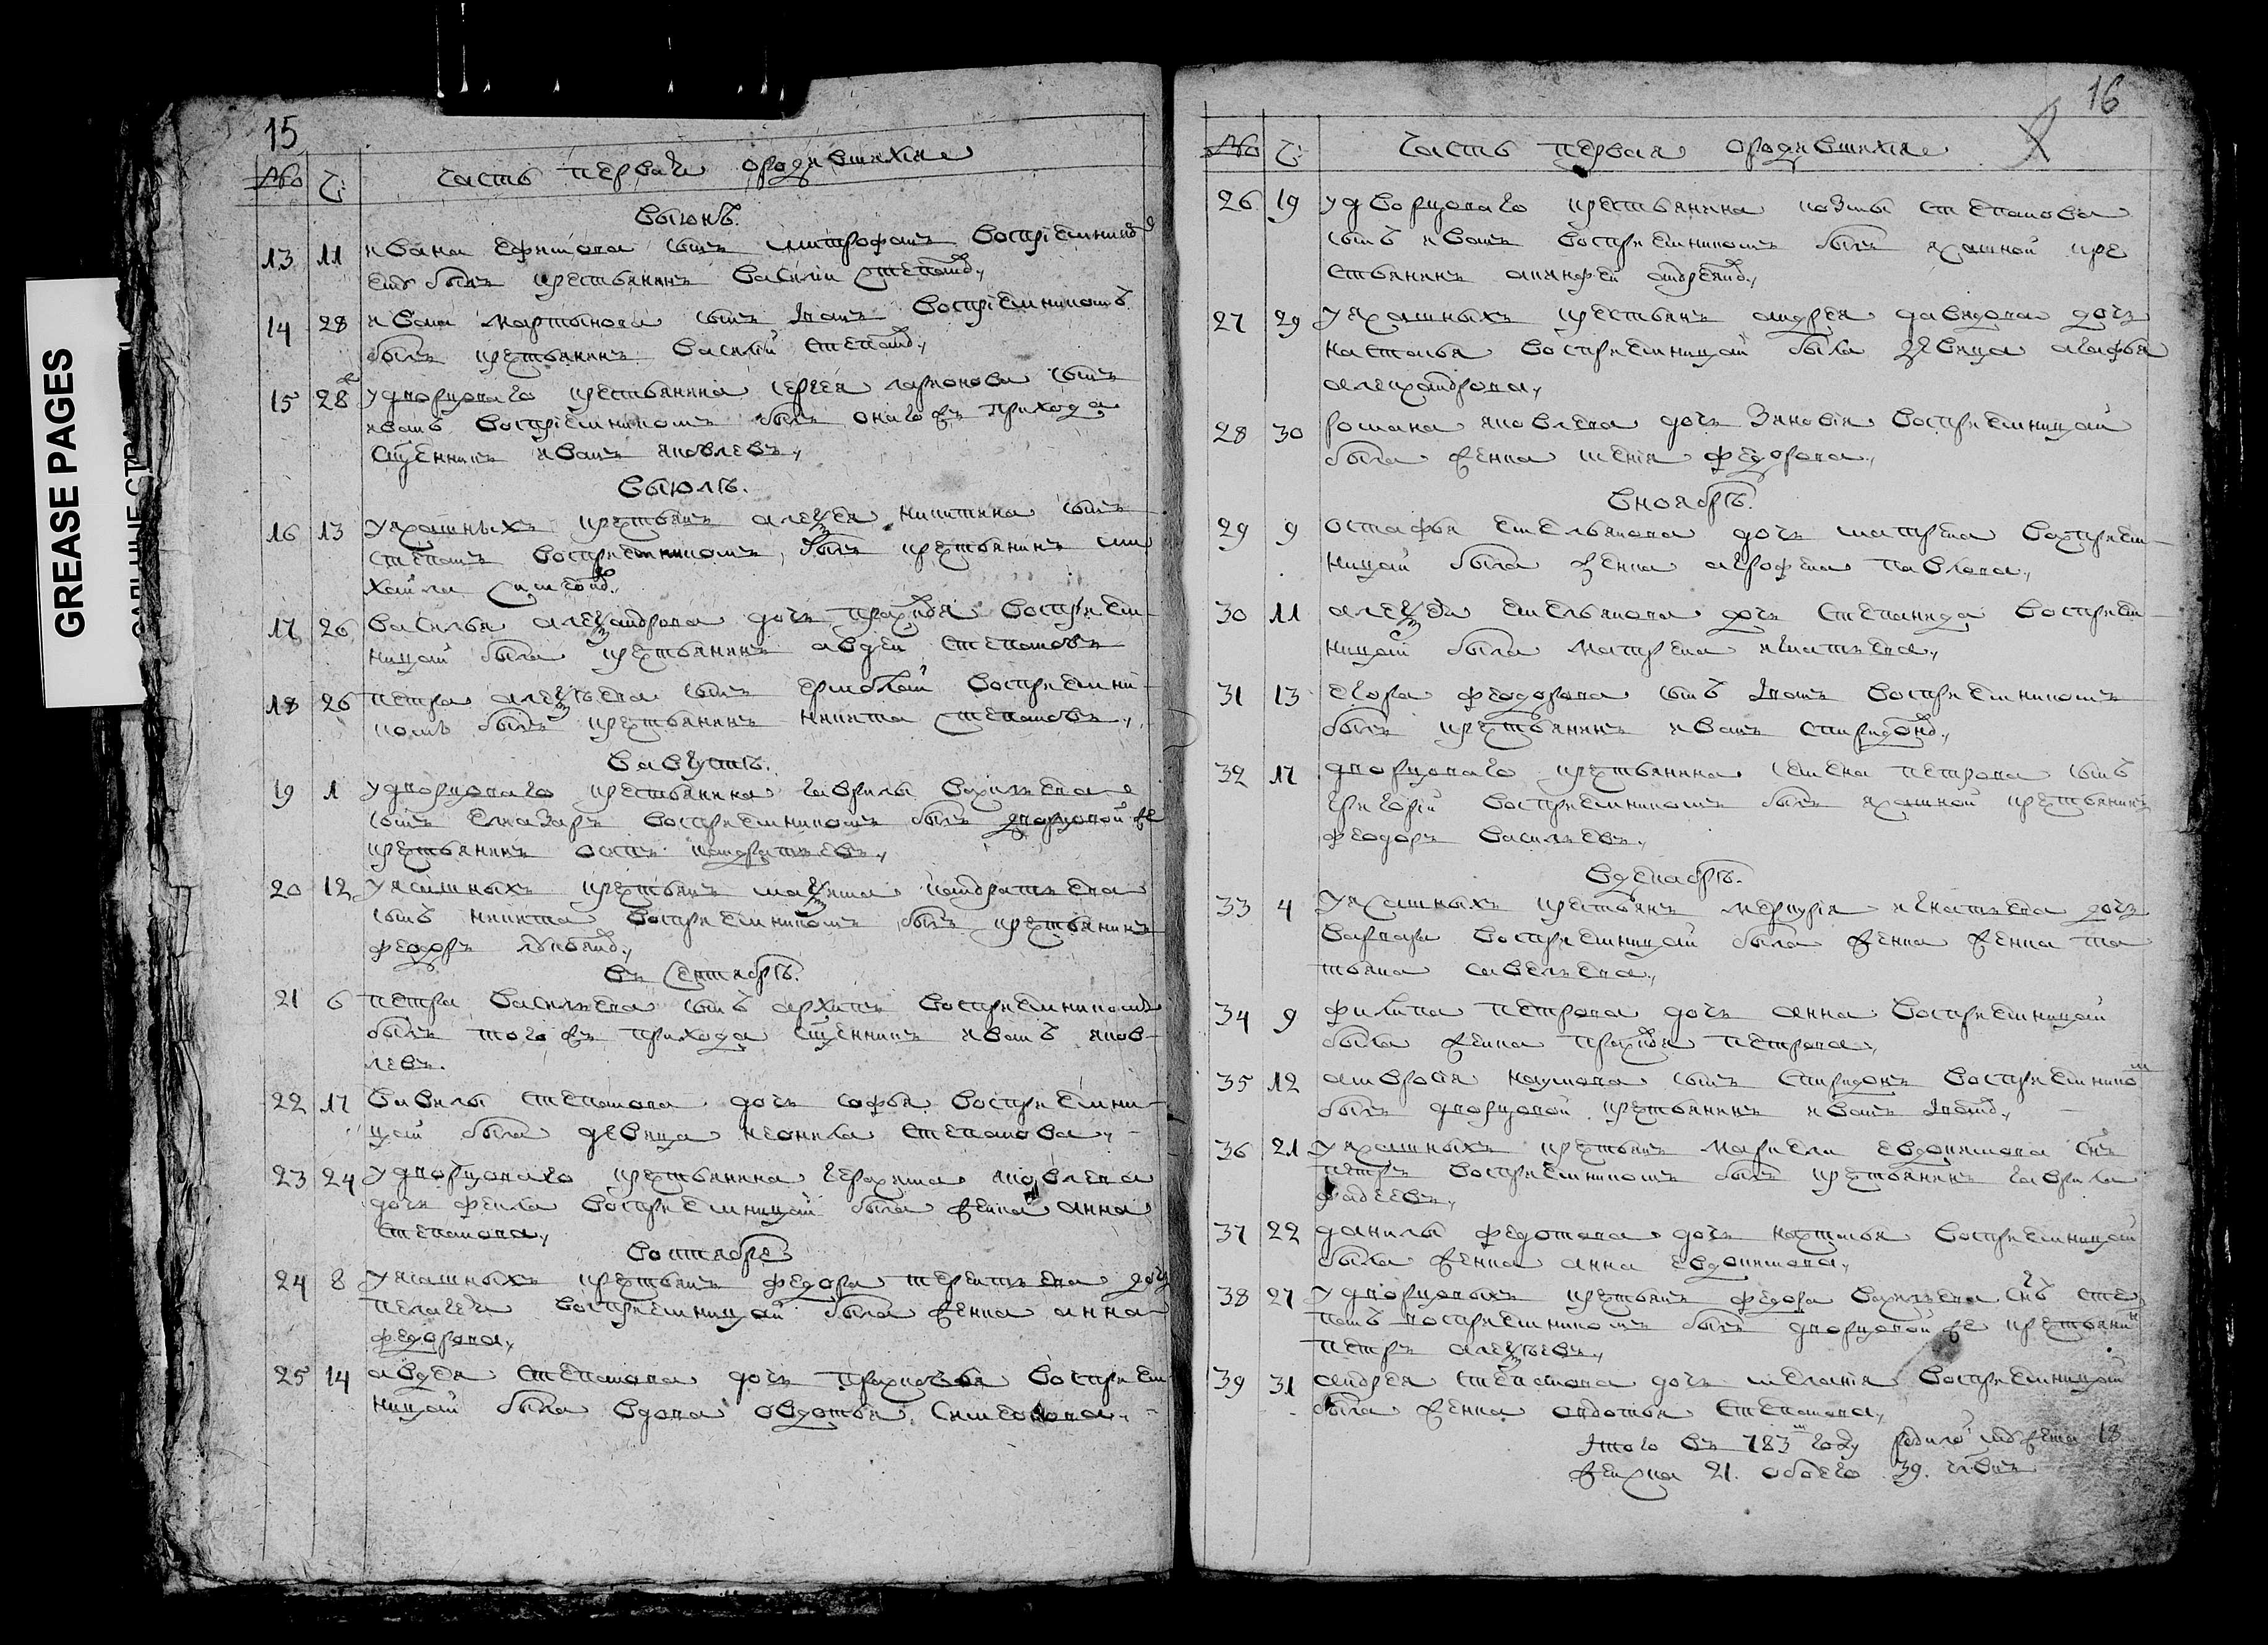 GREASE PAGES
15
№ Ч: часть перваѧ ородившихся
Выюнѣ.
13 11 ивана ефимова сынъ митрофанъ воспрiемником
ему былъ крестьянинъ василiи степанов,
14 28 ивана мартынова сынъ Iванъ воспрiемникомъ
былъ крестьянинъ василiй степанов,
15 28 у дворцоваго крестьянина сергея ларионова сынъ
иванъ воспрiемникомъ былъ онагожъ прихода
сщенникъ иванъ яковлевъ,
Выюлѣ.
16 13 крестьянъ алеѯея никитина сынъ
степанъ воспрiемникомъ былъ крестьянинъ ми
хаила симеонов,
17 26 василья алеѯандрова дочь воспрiем
ницаи была крестьянинъ авдеи степановъ
18 26 петра алеѯѣева сынъ ермолай воспрiемни
комъ былъ крестьянинъ никита степановъ,
Вавгустѣ.
19 1 у дворцоваго крестьянина гаврилы васильева
сынъ елиазаръ воспрiемникомъ былъ дворцовой же
крестьянинъ осипъ кондратьевъ,
20 12 крестьянъ маѯима кондратьева
сынъ никита воспрiемникомъ былъ крестьянинъ
феодоръ
въ сентябрѣ.
21 6 петра васильева сынъ архипъ воспрiемникомъ
былъ тогожъ прихода сщенникъ иванъ яков
левъ.
22 17 вавилы степанова дочь софья воспрiемни
цаи была девица неонила степанова,
23 24 у дворцоваго крестьянина герасима яковлева
дочь фекла воспрiемницаи была женка анна
степанова,
Воктябре
24 8 крестьянъ федора терентьева дочь
пелагея воспрiемницаи была женка анна
федорова,
25 14 авдея степанова дочь прасковья воспрiем
ницаи была вдова овдотья симеонова,
16
№ Ч: Часть первая ородившихся
26 19 у дворцоваго крестьянина козмы степанова
сынъ иванъ воспрiемникомъ былъ ясашной кре
стьянинъ андреянов,
27 29 у ясашныхъ крестьянъ андрея давыдова дочь
настасья воспрiемницаи была девица агафья
алеѯандрова,
28 30 романа яковлева дочь зиновiя воспрiемницаи
была женка федорова,
Вноябрѣ.
29 9 остафья емельянова дочь матрена воспрiем
ницаи была женка агрофена павлова,
30 11 алеѯея емельянова дочь степанида воспрiем
ницаи была матрена игнатьева,
31 13 егора феодорова сынъ Iванъ воспрiемникомъ
былъ крестьянинъ иванъ спиридонов,
32 17 дворцоваго крестьянина семена петрова сынъ
григорiй воспрiемникомъ былъ ясашной крестьянинъ
феодоръ васильевъ,
Вдекабрѣ.
33 4 у ясашныхъ крестьянъ меркурiя игнатьева дочь
варвара воспрiемницаи была женка женка та
тьяна савельева,
34 9 филипа петрова дочь анна воспрiемницаи
была женка петрова,
35 12 амвросiя наумова сынъ спиридонъ воспрiемником
былъ дворцовой крестьянинъ иванъ
36 21 у ясашныхъ крестьянъ маркела евдокимова снъ
петръ воспрiемникомъ былъ крестьянинъ гаврила
фадеевъ,
37 22 данилы федотова дочь настасья воспрiемницаи
была женка анна евдокимова,
38 27 у дворцовыхъ крестьянъ федора васильева снъ сте
панъ воспрiемникомъ былъ дворцовой же крестьянин
петръ алеѯѣевъ,
39 31 андрея степанова дочь меланiя воспрiемницаи
была женка авдотья степанова,
Iтого въ 783м году родилос мужеска 18
женска 21. обоего 39. члвкъ